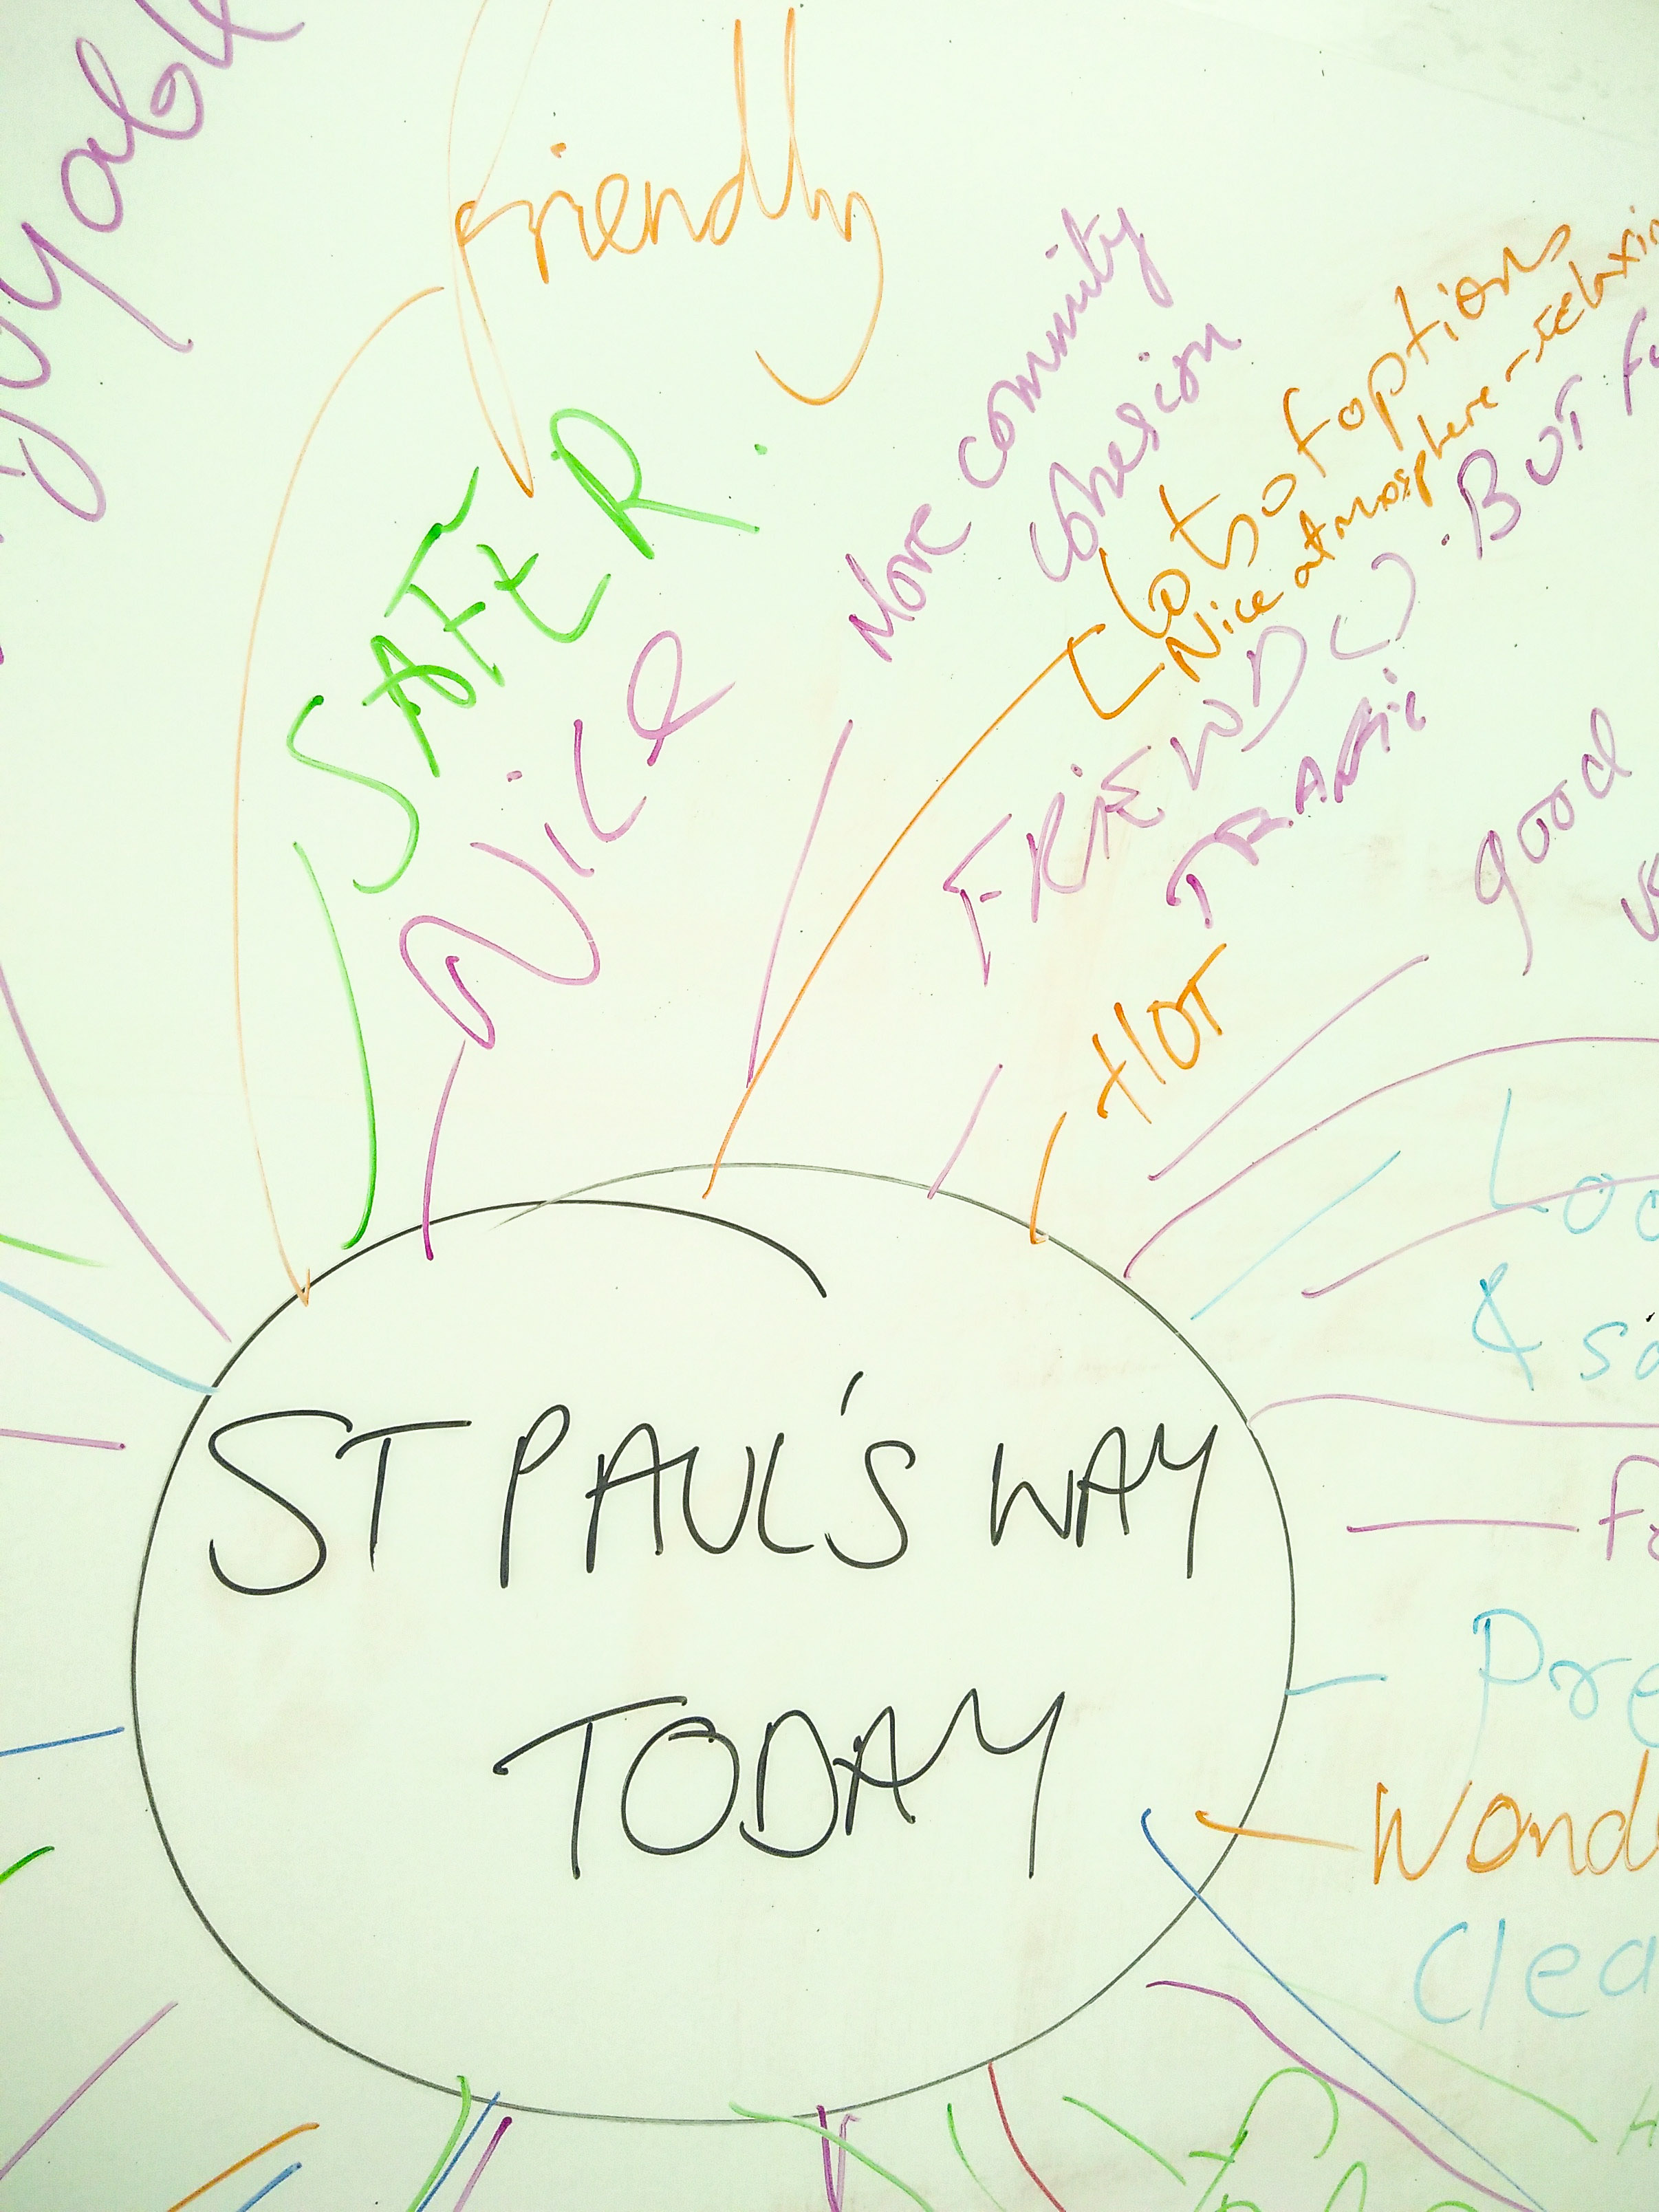 friendly
SAFER.
NicE
More community
cohesion
Lots of options
Nice atmosphere - relaxin
FRIENDLY. BUT
TRAFFIC
HOT
good
Loc
& sa
Pre
Wonde
Clea
ST PAUL'S WAY
TODAY